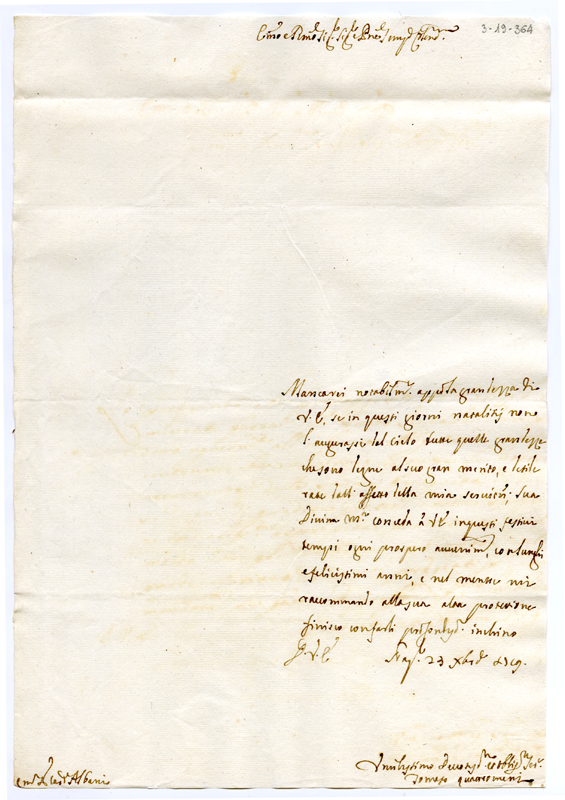 3-19-364
Em̃o e Rm̃o Sig.r Sig.r e Pne
Mancarei notabilm.te app.o la grandezza di
V. E., se in questi giorni natalitij non
l'augurassi dal Cielo tutte quelle grandezze
che sono degne al suo gran merito, e deside
rate dall'affetto della mia servitù, Sua
Divina M.tà conceda à V. E. in questi festivi
tempi ogni prospero avvenim.to, con lunghi
e felicissimi anni, e nel mentre mi
raccommando alla sua alta protezione
finisco con farli prof. inchino
D. V. E. Nap. 23 Xbre 1719.
Em. Card. Albani
Umilissimo Devot. et Obblig. Ser.
Tomaso